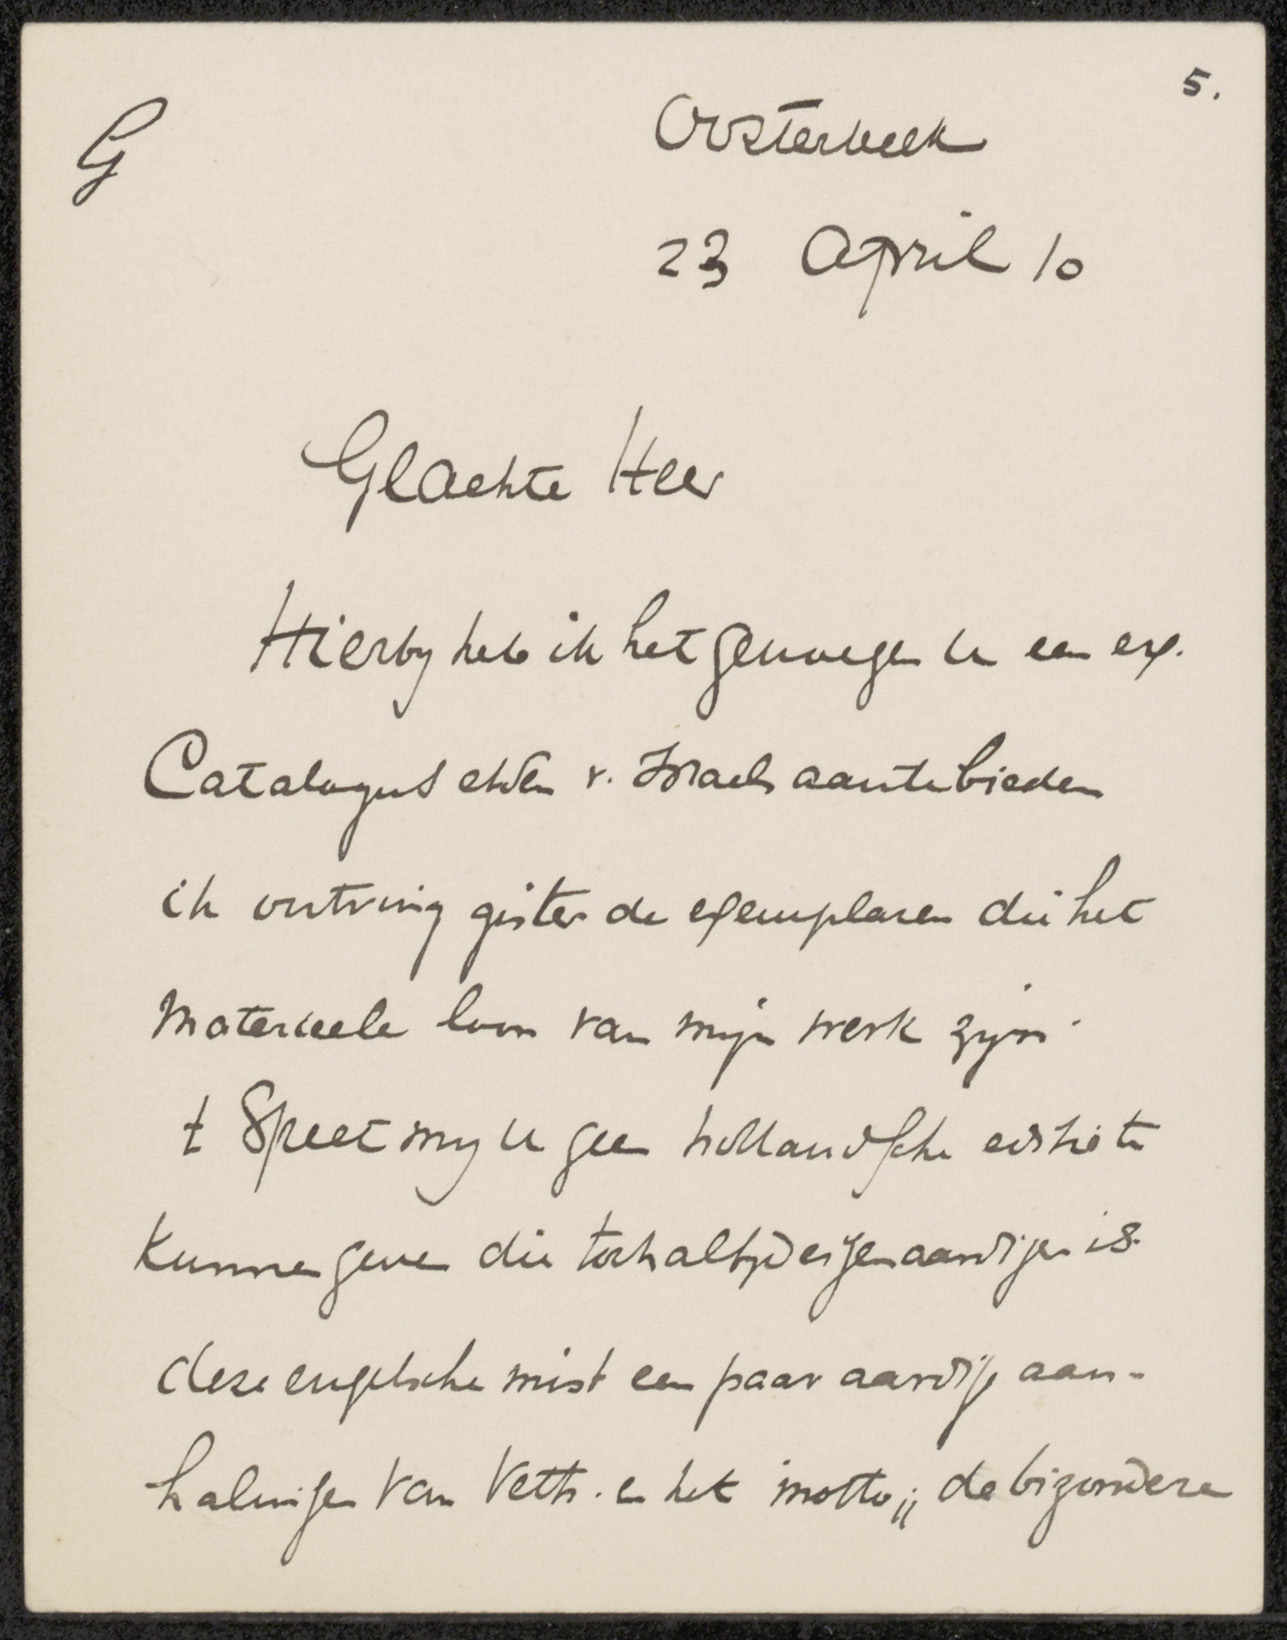 5.
G
Oosterbeek
23 April 10
Geachte Heer
Hierby heb ik het genoegen U een ex.
Catalogus etsen v. Israels aantebieden
ik ontving gister de exemplaren die het
Materieele loon van mijn werk zijn.
t Speet my U geen hollandsche editie te
kunnen geven die toch altyd eigenaardiger is
deze engelsche mist een paar aardige aan-
halingen van Veth. en het motto „ de bizondere